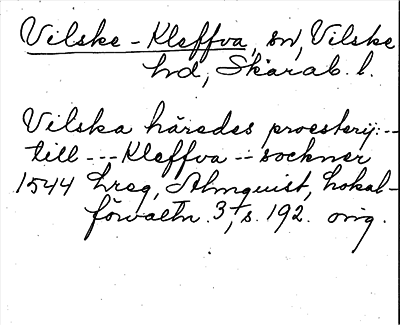 Vilske-Kleffva, sn, Vilske
hd, Skarab. l.
Vilska häredes prosterij: --
till --- Kleffva -- sockner
1544 hreg, Almquist, Lokal-
förvaltn. 3, s. 192. orig.